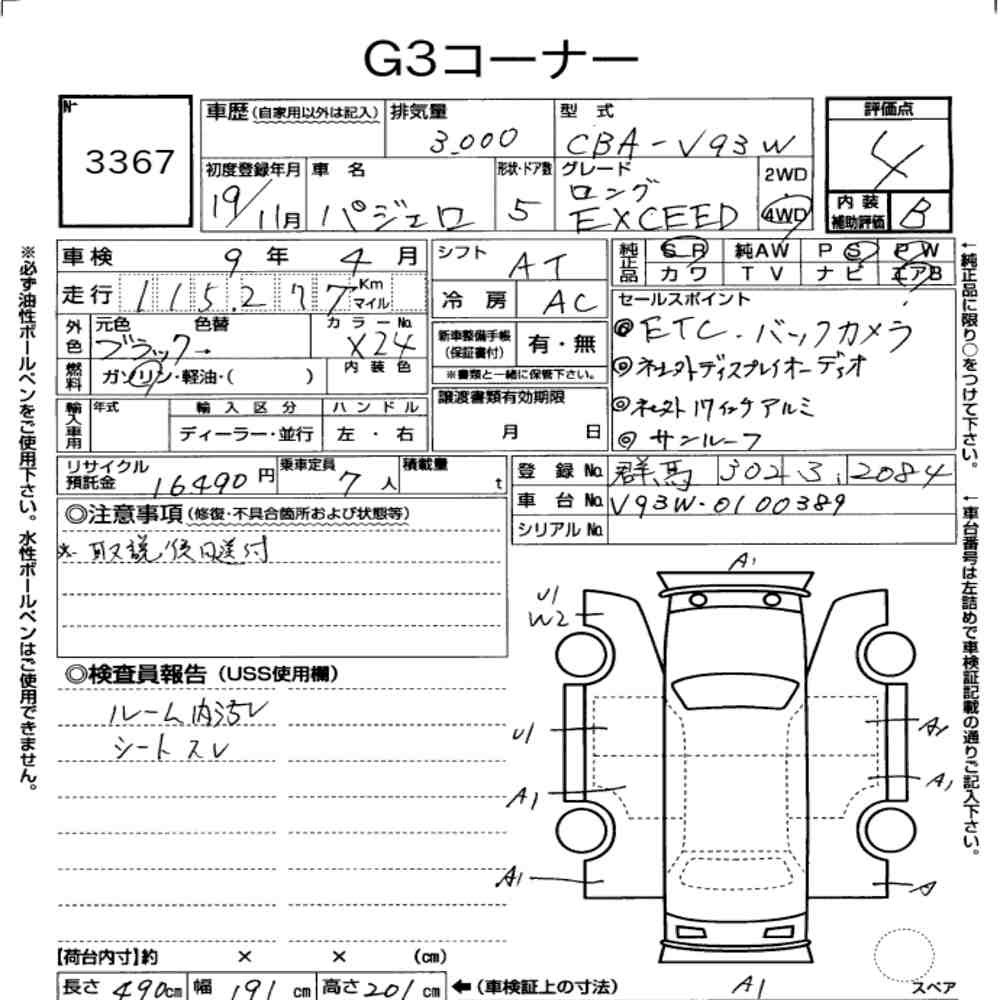 G3コーナー
№
3367
車歴(自家用以外は記入) 排気量 3,000 型式 CBA-V93W
初度登録年月 19/11月 車名 パジェロ 形状・ドア数 5 グレード ロング EXCEED 2WD ・ 4WD
評価点 4
内装補助評価 B
車検 9年 4月
走行 115,277 Km マイル
外色 元色 ブラック 色替 → カラーNo. X24
燃料 ガソリン・軽油・( ) 内装色
輸入車用 年式 輸入区分 ハンドル
ディーラー・並行 左・右
シフト AT
冷房 AC
新車整備手帳(保証書付) 有・無
※書類と一緒に保管下さい。
譲渡書類有効期限
月 日
純正品 SR 純AW PS PW
カワ TV ナビ エアB
セールスポイント
◎ETC.バックカメラ
◎ネセ外ディスプレイオーディオ
◎ネセ外17インチアルミ
◎サンルーフ
リサイクル預託金 16490円 乗車定員 7人 積載量 t
登録No. 群馬 302 ス 2084
車台No. V93W-0100389
シリアルNo.
◎注意事項(修復・不具合箇所および状態等)
※取説後日送付
◎検査員報告(USS使用欄)
ルーム内汚レ
シートスレ
※必ず油性ボールペンをご使用下さい。水性ボールペンはご使用できません。
←純正品に限り○をつけて下さい。
←車台番号は左詰めで車検証記載の通りご記入下さい。
A1
U1
W2
U1
A1
A1
A1
A
A1
スペア
【荷台内寸】約 × × (cm)
長さ 490cm 幅 191cm 高さ 201cm ←(車検証上の寸法)